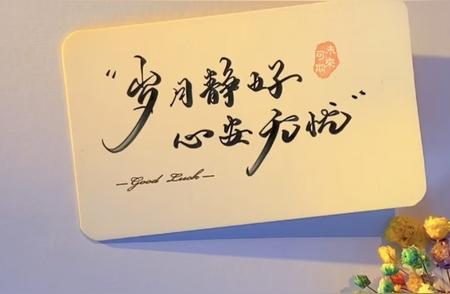 "岁月静好
心安无忧"
未来
可期
—Good Luck—